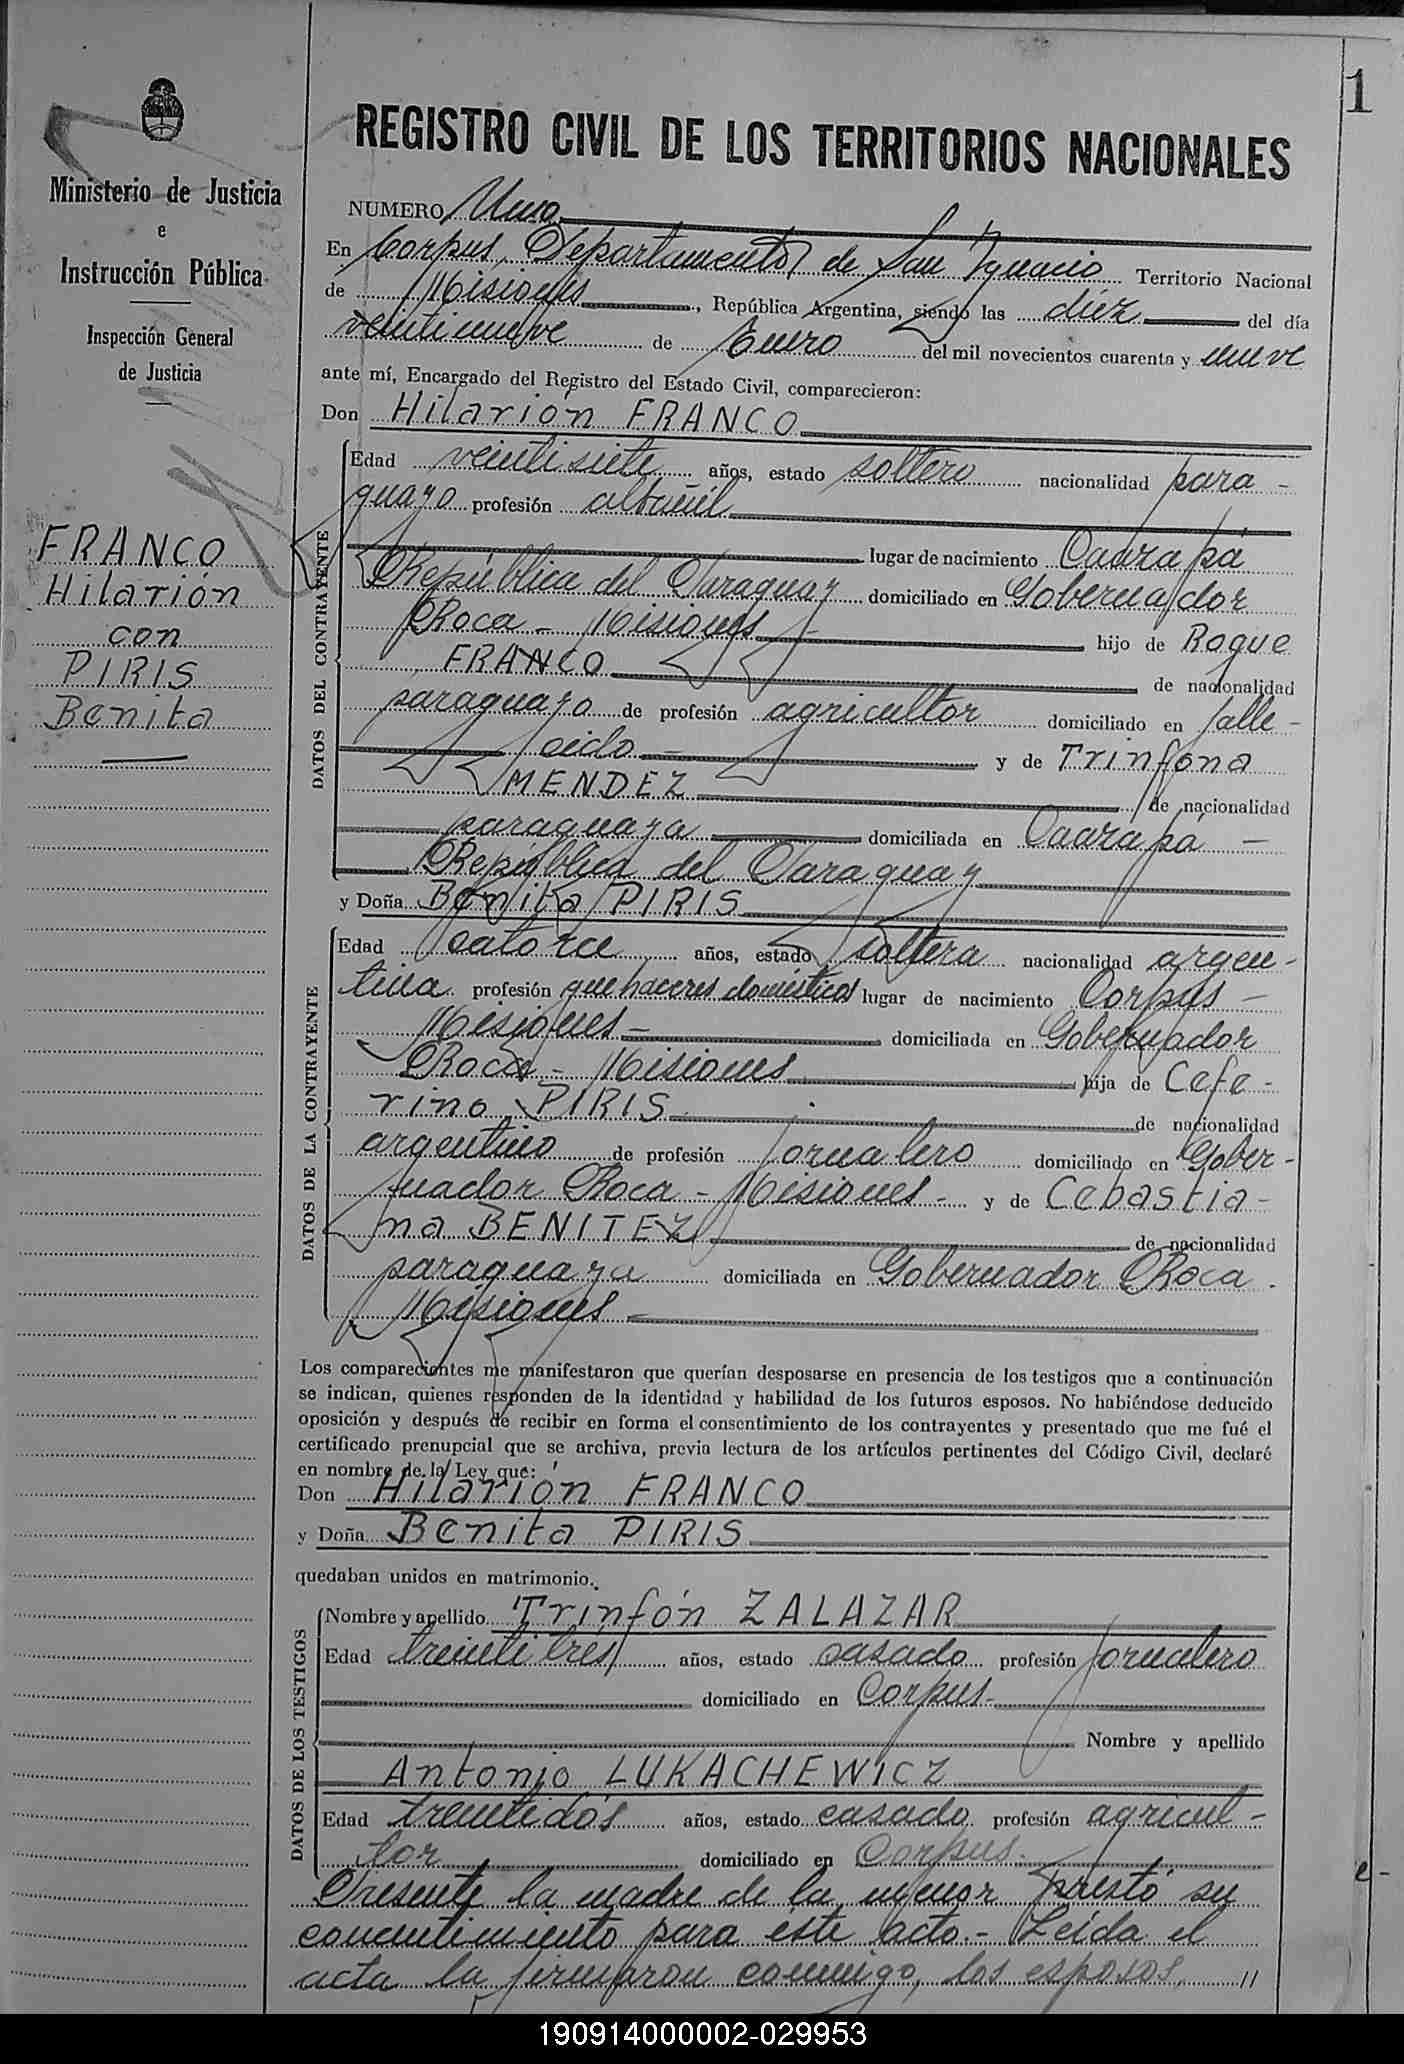 1
Ministerio de Justicia
e
Instrucción Pública
Inspección General
de Justicia
FRANCO
Hilarión
con
PIRIS
Benita
REGISTRO CIVIL DE LOS TERRITORIOS NACIONALES
NUMERO Uno
En Corpus, Departamento de San Ignacio Territorio Nacional
de Misiones, República Argentina, siendo las diez del día
veintinueve de Enero del mil novecientos cuarenta y nueve
ante mí, Encargado del Registro del Estado Civil, comparecieron:
Don Hilarión FRANCO
DATOS DEL CONTRAYENTE
Edad veintisiete años, estado soltero nacionalidad para-
guayo profesión albañil
lugar de nacimiento Caarapá
República del Paraguay domiciliado en Gobernador
Roca - Misiones hijo de Roque
FRANCO de nacionalidad
paraguayo de profesión agricultor domiciliado en falle-
cido y de Trinfona
MENDEZ de nacionalidad
paraguaya domiciliada en Caarapá -
República del Paraguay
y Doña Benita PIRIS
DATOS DE LA CONTRAYENTE
Edad catorce años, estado soltera nacionalidad argen-
tina profesión quehaceres domésticos lugar de nacimiento Corpus -
Misiones - domiciliada en Gobernador
Roca - Misiones hija de Cefe-
rino PIRIS de nacionalidad
argentino de profesión jornalero domiciliado en Gober-
nador Roca - Misiones - y de Cebastia-
na BENITEZ de nacionalidad
paraguaya domiciliada en Gobernador Roca -
Misiones -
Los comparecientes me manifestaron que querían desposarse en presencia de los testigos que a continuación
se indican, quienes responden de la identidad y habilidad de los futuros esposos. No habiéndose deducido
oposición y después de recibir en forma el consentimiento de los contrayentes y presentado que me fué el
certificado prenupcial que se archiva, previa lectura de los artículos pertinentes del Código Civil, declaré
en nombre de la Ley que:
Don Hilarión FRANCO
y Doña Benita PIRIS
quedaban unidos en matrimonio.
DATOS DE LOS TESTIGOS
Nombre y apellido Trinfón ZALAZAR
Edad treintitrés años, estado casado profesión jornalero
domiciliado en Corpus-
Nombre y apellido
Antonio LUKACHEWICZ
Edad treintidós años, estado casado profesión agricul-
tor domiciliado en Corpus.
Presente la madre de la menor prestó su
concentimiento para éste acto.- Leída el
acta la firmaron conmigo, los esposos, //
e-
190914000002-029953